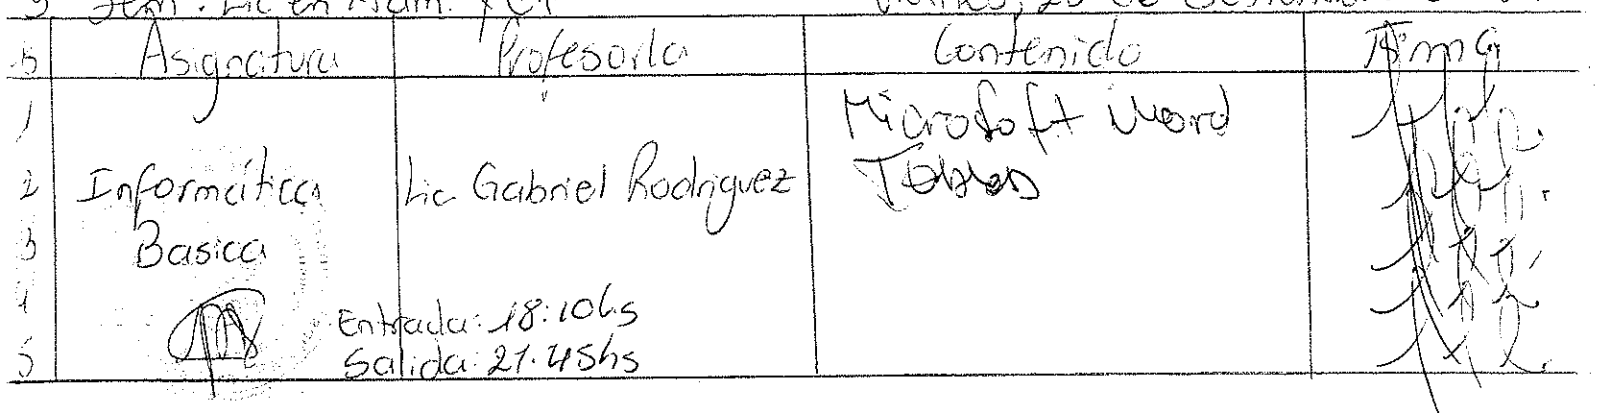 Asignatura Profesor/a Contenido Firma
1 Microsoft Word
2 Informática Lic Gabriel Rodriguez Tablas
3 Basica
4 Entrada: 18:10hs
5 Salida: 21:45hs